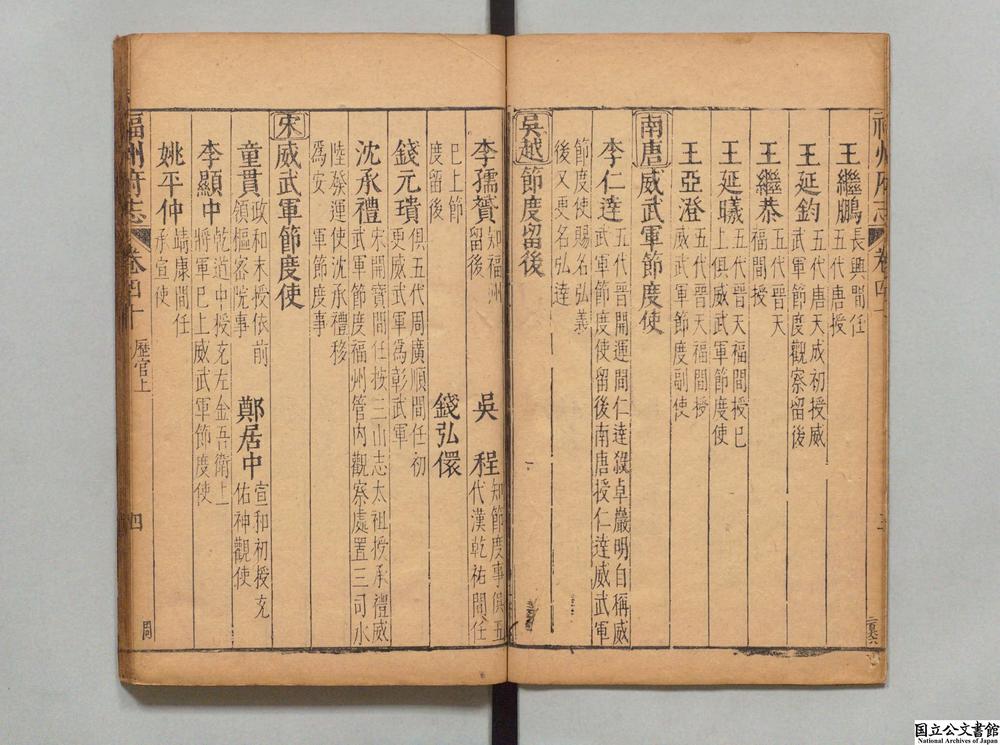 王繼鵬長興間任五代唐授
王延鈞五代唐天成初授威武軍節度觀察留後
王繼恭五代晉天福間授
王延曦五代晉天福間授已上俱威武軍節度使
王亞澄五代晉天福間授威武軍節度副使
南唐威武軍節度使
李仁達五代晉開運間仁達殺卓巖明自稱威武軍節度使留後南唐授仁達威武軍
節度使賜名弘義後又更名弘達
吳越節度留後
李孺贇知福州留後 吳程知節度事俱五代漢乾祐間任
巳上節度留後 錢弘儇
錢元璝俱五代周廣順間任初更威武軍為彰武軍
沈承禮宋開寶間任按三山志太祖授承禮威武軍節度福州管內觀察處置三司水
陸發運使沈承禮移為安軍節度事
宋威武軍節度使
童貫政和末授依前領樞密院事 鄭居中宣和初授充佑神觀使
李顯中乾道中授充左金吾衛上將軍巳上威武軍節度使
姚平仲靖康間任承宣使
福州府志 卷四十 歷官上 四
国立公文書館
National Archives of Japan